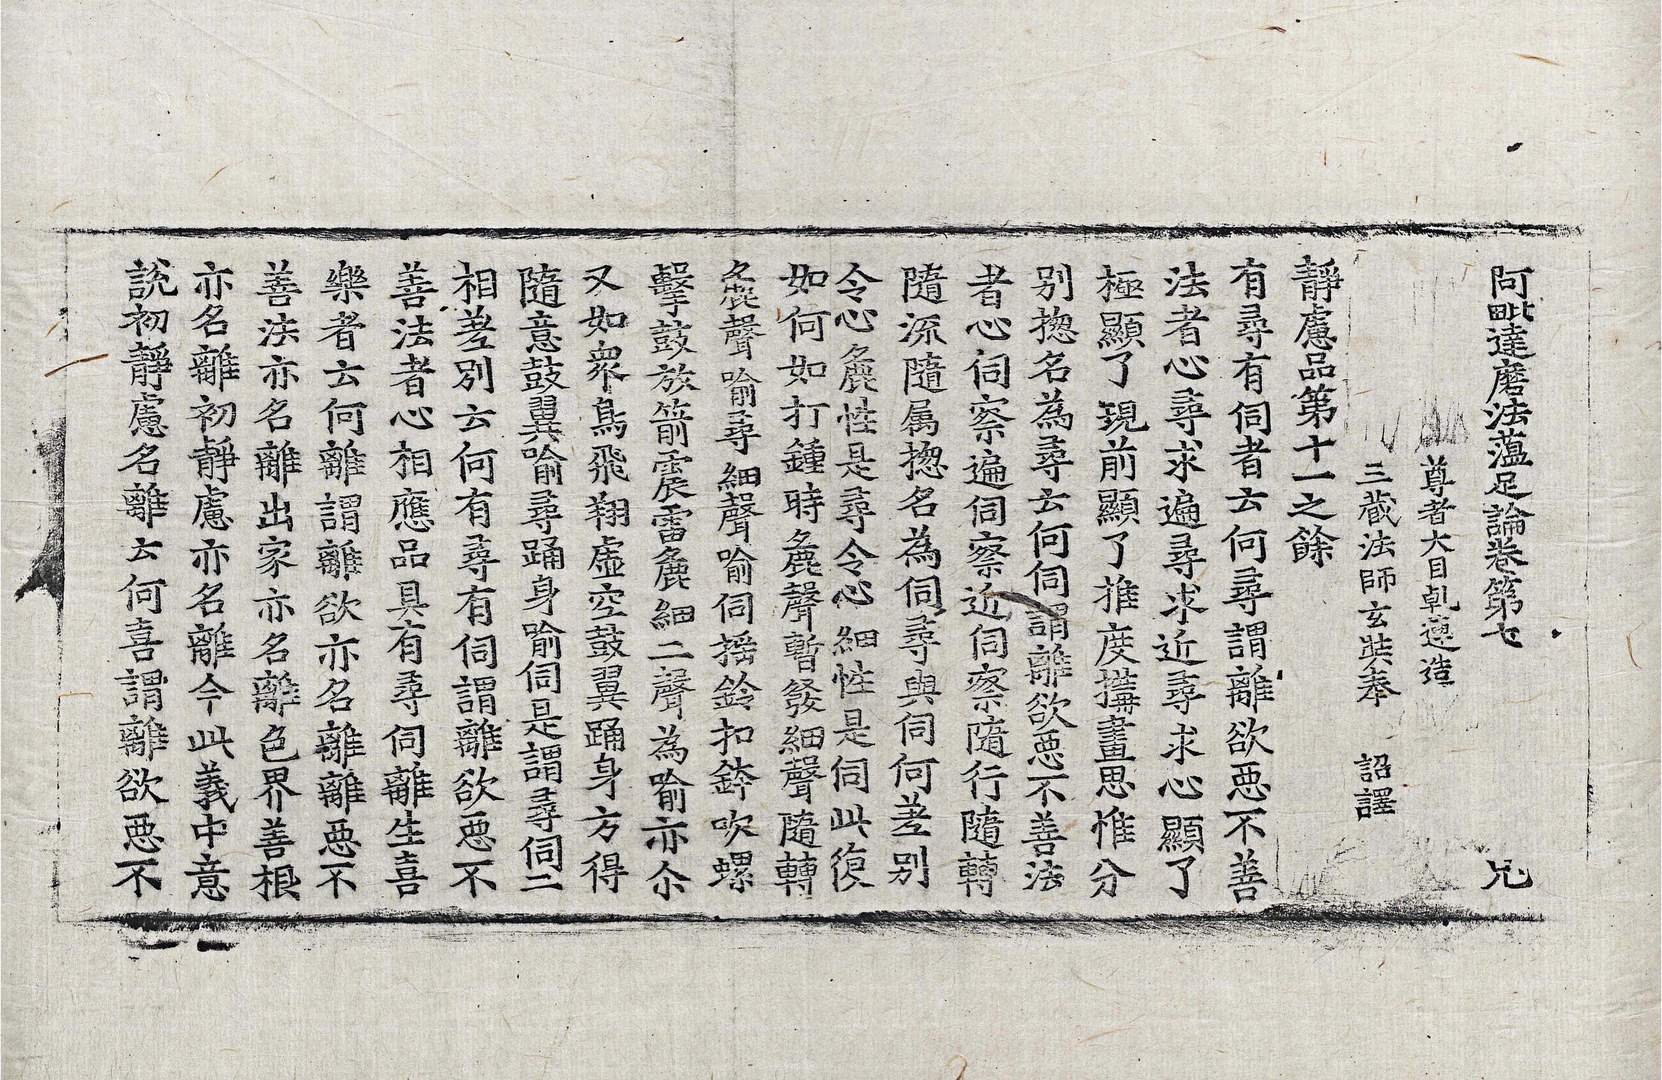 阿毗達磨法蘊足論卷第七 兄
尊者大目乹連造
三藏法師玄奘奉 詔譯
靜慮品第十一之餘
有尋有伺者云何尋謂離欲惡不善
法者心尋求遍尋求近尋求心顯了
極顯了現前顯了推度搆畫思惟分
别揔名為尋云何伺謂離欲惡不善法
者心伺察遍伺察近伺察隨行隨轉
隨流隨属揔名為伺尋與伺何差别
令心麁性是尋令心細性是伺此復
如何如打鍾時麁聲暫發細聲隨轉
麁聲喻尋細聲喻伺揺鈴扣鉢吹螺
擊鼓放箭震雷麁細二聲為喻亦尒
又如衆鳥飛翔虚空鼓翼踊身方得
隨意鼓翼喻尋踊身喻伺是謂尋伺二
相差别云何有尋有伺謂離欲惡不
善法者心相應品具有尋伺離生喜
樂者云何離謂離欲亦名離離惡不
善法亦名離出家亦名離色界善根
亦名離初靜慮亦名離今此義中意
說初靜慮名離云何喜謂離欲惡不